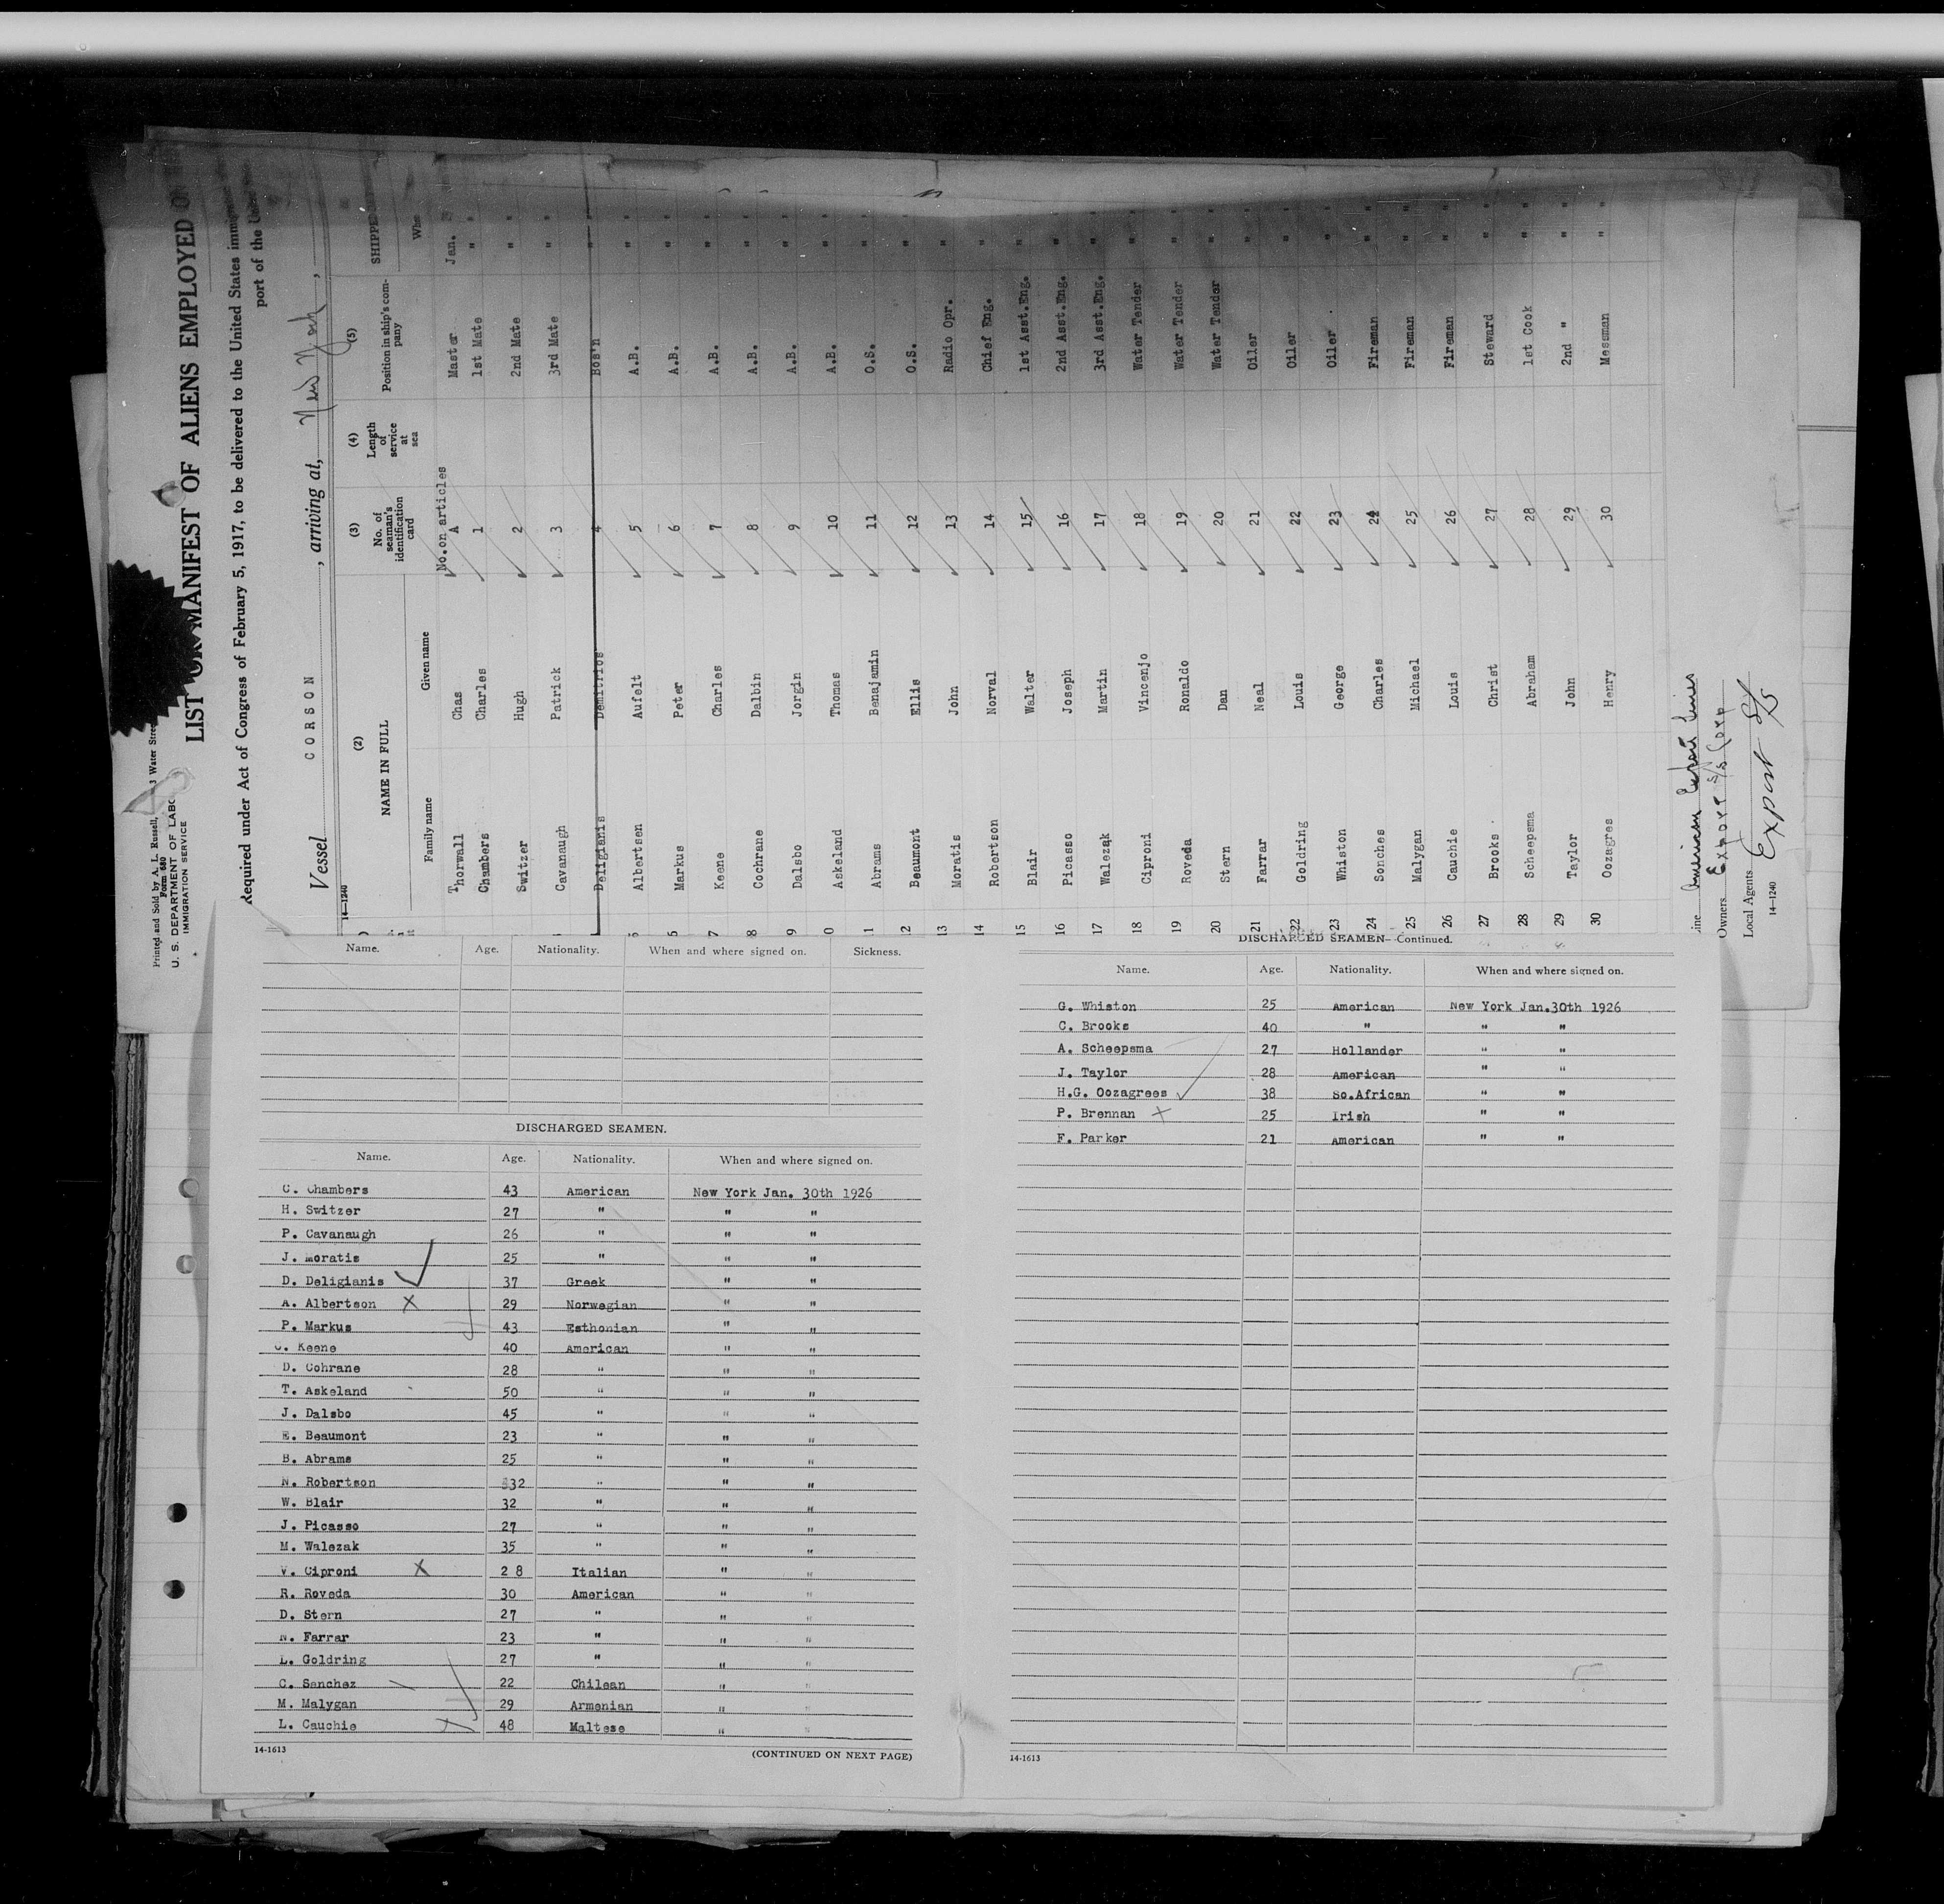 Printed and Sold by A. L. Russell, 3 Water Stre
Form 680
U. S. DEPARTMENT OF LABO
IMMIGRATION SERVICE
LIST OR MANIFEST OF ALIENS EMPLOYED O
Required under Act of Congress of February 5, 1917, to be delivered to the United States immi
port of the Un
Vessel CORSON, arriving at, New York,
14—1240
(2) (3) (4) (5)
NAME IN FULL No. of seaman's identification card Length of service at sea Position in ship's company SHIPPE
Family name Given name Whe
No. on articles
Thorwall Chas A Master Jan.
Chambers Charles 1 1st Mate "
Switzer Hugh 2 2nd Mate " "
Cavanaugh Patrick 3 3rd Mate " "
Deligianis Demitrios 4 Bos'n " "
Albertsen Aufelt 5 A.B. " "
Markus Peter 6 A.B. " "
7 Keene Charles 7 A.B. " "
8 Cochrane Dalbin 8 A.B. " "
9 Dalsbo Jorgin 9 A.B. " "
0 Askeland Thomas 10 A.B. " "
11 Abrams Benajamin 11 O.S. " "
2 Beaumont Ellis 12 O.S. " "
13 Moratis John 13 Radio Opr. " "
14 Robertson Norval 14 Chief Eng. " "
15 Blair Walter 15 1st Asst.Eng. " "
16 Picasso Joseph 16 2nd Asst.Eng. " "
17 Walezak Martin 17 3rd Asst.Eng. " "
18 Ciproni Vincenjo 18 Water Tender " "
19 Roveda Ronaldo 19 Water Tender " "
20 Stern Dan 20 Water Tender " "
21 Farrar Neal 21 Oiler " "
22 Goldring Louis 22 Oiler " "
23 Whiston George 23 Oiler " "
24 Sonches Charles 24 Fireman " "
25 Malygan Michael 25 Fireman " "
26 Cauchie Louis 26 Fireman " "
27 Brooks Christ 27 Steward " "
28 Scheepsma Abraham 28 1st Cook " "
29 Taylor John 29 2nd " " "
30 Oozagres Henry 30 Messman " "
ine American Export Lines
Owners Export S/S Corp
Local Agents Export S/S
14—1240
Name. Age. Nationality. When and where signed on. Sickness.
DISCHARGED SEAMEN.
Name. Age. Nationality. When and where signed on.
C. Chambers 43 American New York Jan. 30th 1926
H. Switzer 27 " " "
P. Cavanaugh 26 " " "
J. Moratis 25 " " "
D. Deligianis 37 Greek " "
A. Albertson X 29 Norwegian " "
P. Markus 43 Esthonian " "
C. Keene 40 American " "
D. Cohrane 28 " " "
T. Askeland 50 " " "
J. Dalsbo 45 " " "
E. Beaumont 23 " " "
B. Abrams 25 " " "
N. Robertson 32 " " "
W. Blair 32 " " "
J. Picasso 27 " " "
M. Walezak 35 " " "
V. Ciproni X 28 Italian " "
R. Roveda 30 American " "
D. Stern 27 " " "
N. Farrar 23 " " "
L. Goldring 27 " " "
C. Sanchez 22 Chilean " "
M. Malygan 29 Armenian " "
L. Cauchie 48 Maltese " "
14-1613 (CONTINUED ON NEXT PAGE)
DISCHARGED SEAMEN—Continued.
Name. Age. Nationality. When and where signed on.
G. Whiston 25 American New York Jan.30th 1926
C. Brooks 40 " " "
A. Scheepsma 27 Hollander " "
J. Taylor 28 American " "
H.G. Oozagrees 38 So.African " "
P. Brennan X 25 Irish " "
F. Parker 21 American " "
14-1613